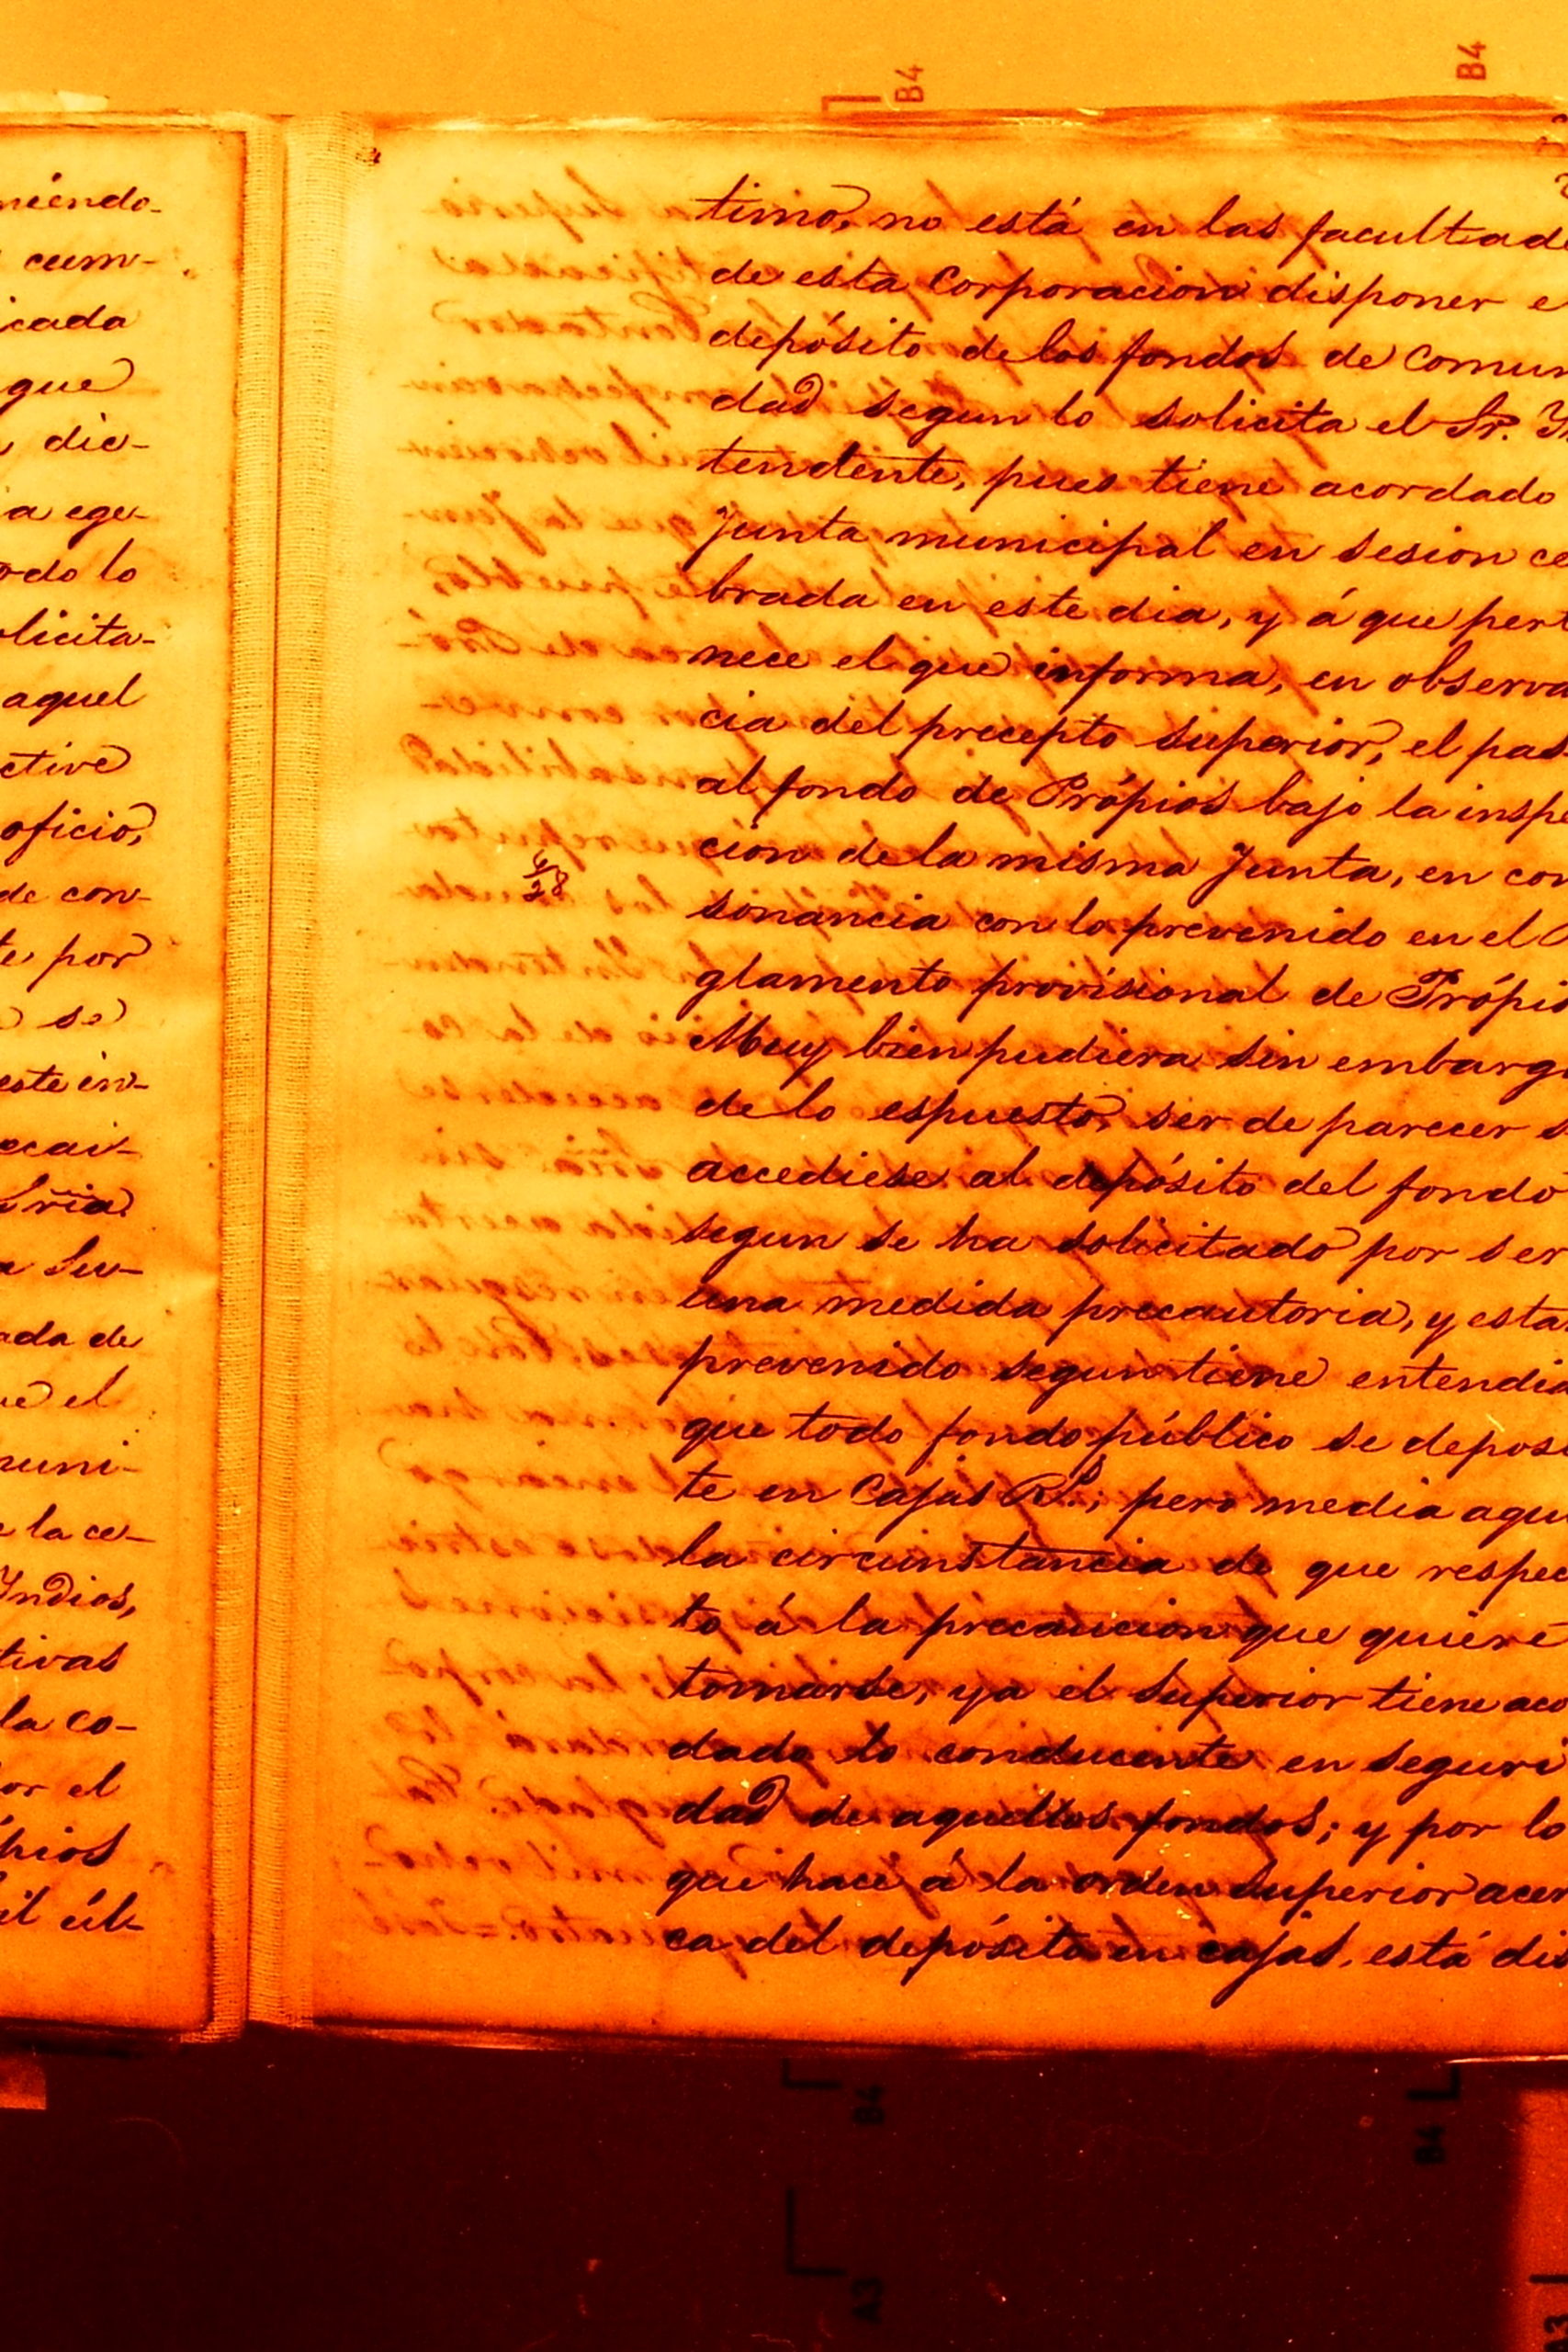 niendo-
cum-
icada
que
dic-
a ege-
odo lo
olicita-
aquel
ctive
oficio,
de con-
te por
se
este in-
ecai-
Sria
a Su-
ada de
ue el
muni-
e la ce-
Yndios,
tivas
la co-
or el
pios
il úl-
B4
B4
timo, no está en las facultade
de esta Corporacion disponer e
depósito de los fondos de comun
dad segun lo solicita el Sr. Yn
tendente, pues tiene acordado
Junta municipal en sesion ce
brada en este dia, y á que perte
nece el que informa, en observa
cia del precepto superior, el pas
al fondo de Própios bajo la inspe
cion de la misma Junta, en con
sonancia con lo prevenido en el
glamento provisional de Própio
Muy bien pudiera sin embarg
de lo espuesto, ser de parecer s
accediese al depósito del fondo
segun se ha solicitado por ser
una medida precautoria, y esta
prevenido segun tiene entendid
que todo fondo público se deposi
te en Cajas Rs.; pero media aqu
la circunstancia de que respec
to á la precaucion que quiere
tomarse, ya el Superior tiene aco
dado lo conducente en seguri
dad de aquellos fondos; y por lo
que hace á la orden superior acer
ca del depósito en cajas, está dis
6/28
B4
B4
A3